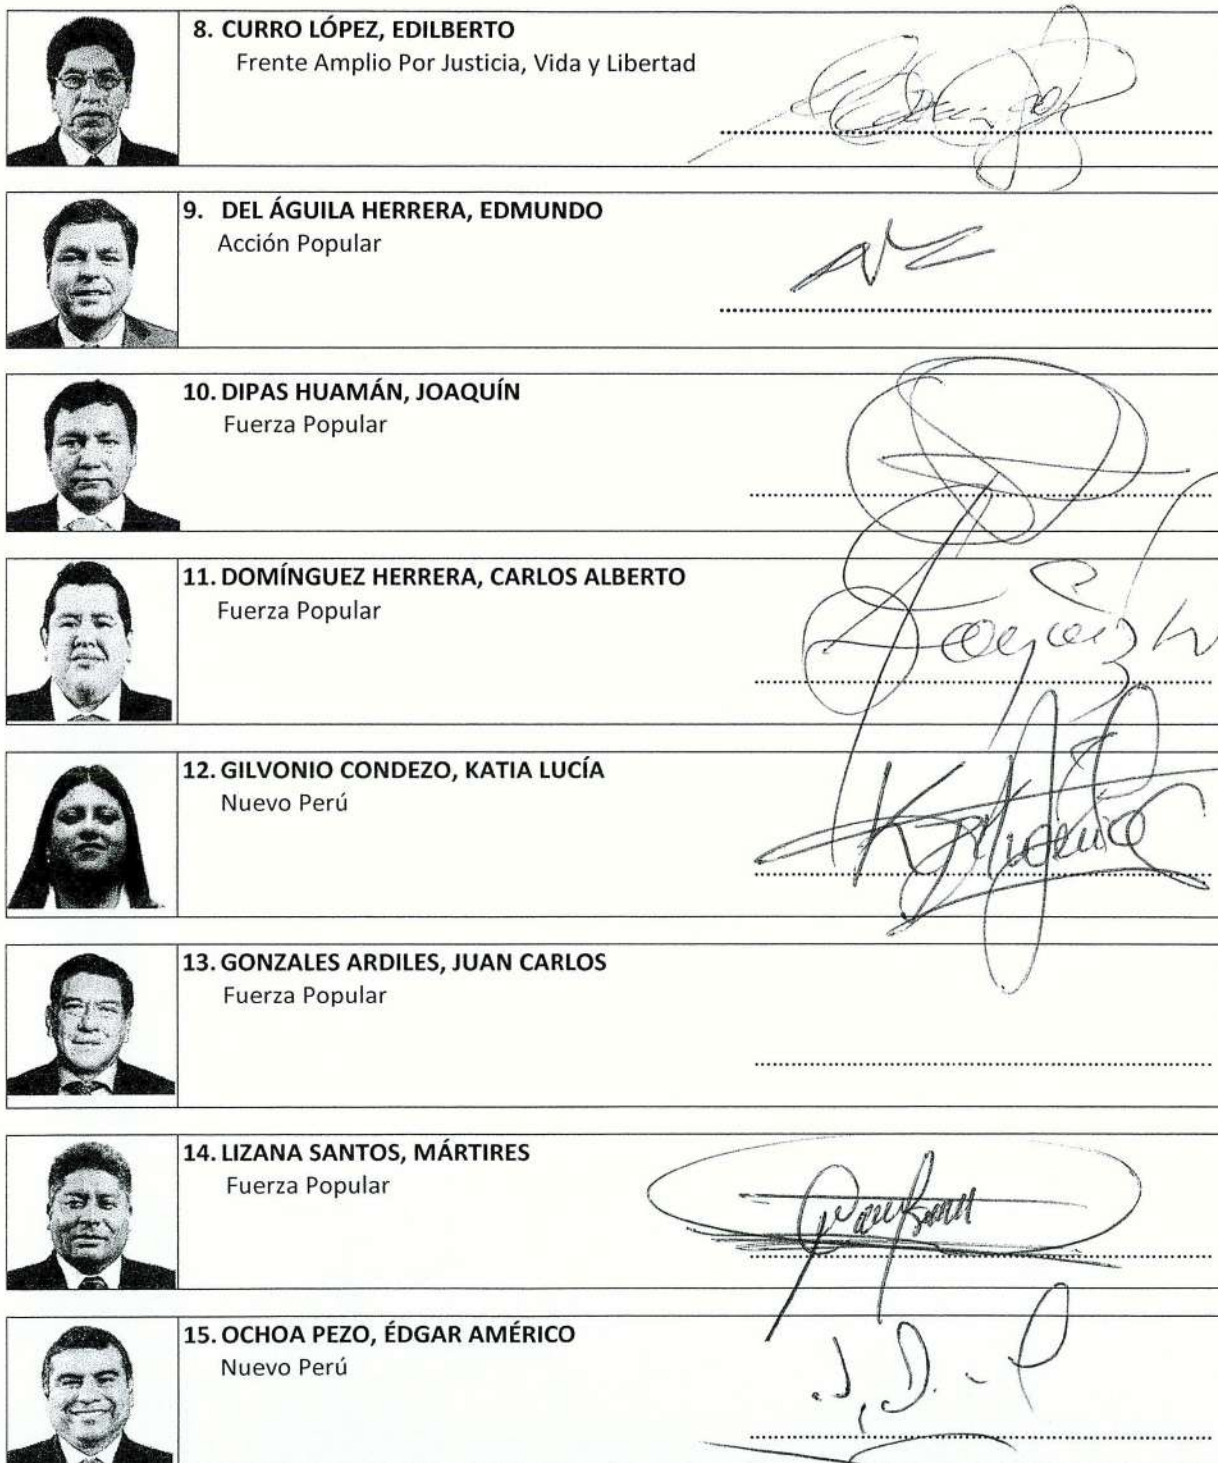 8. CURRO LÓPEZ, EDILBERTO
Frente Amplio Por Justicia, Vida y Libertad
9. DEL ÁGUILA HERRERA, EDMUNDO
Acción Popular
10. DIPAS HUAMÁN, JOAQUÍN
Fuerza Popular
11. DOMÍNGUEZ HERRERA, CARLOS ALBERTO
Fuerza Popular
12. GILVONIO CONDEZO, KATIA LUCÍA
Nuevo Perú
13. GONZALES ARDILES, JUAN CARLOS
Fuerza Popular
14. LIZANA SANTOS, MÁRTIRES
Fuerza Popular
15. OCHOA PEZO, ÉDGAR AMÉRICO
Nuevo Perú